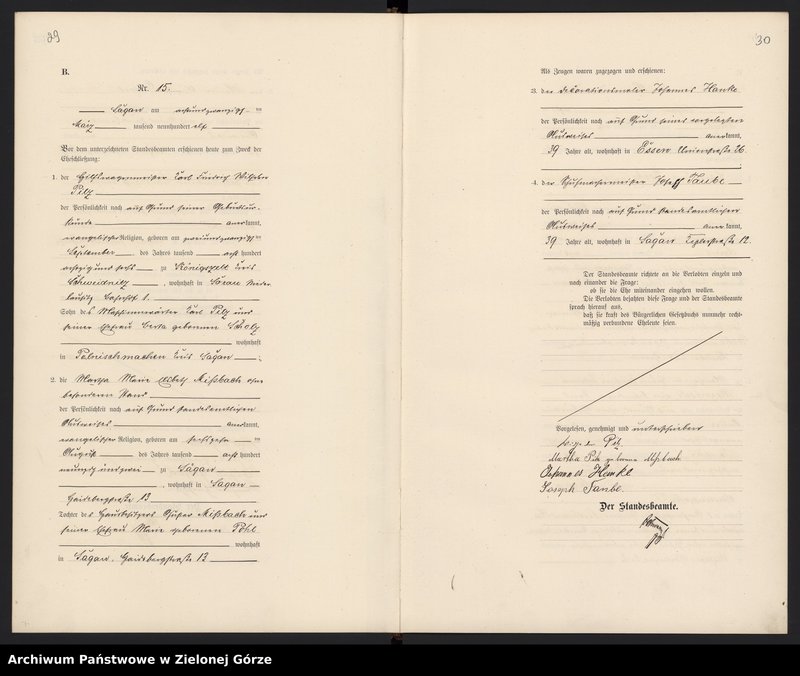 29
B.
Nr. 15.
Sagan am achtundzwanzigsten
März tausend neunhundert elf
Vor dem unterzeichneten Standesbeamten erschienen heute zum Zweck der
Eheschließung:
1. der Karl Friedrich Wilhelm
Pelz
der Persönlichkeit nach auf Grund seiner Geburtsur-
kunde anerkannt,
evangelischer Religion, geboren am zweiundzwanzigsten
September des Jahres tausend acht hundert
achtzig und sechs zu Königszelt Kreis
Schweidnitz, wohnhaft in Sorau Nieder
lausitz
Sohn des Karl Pelz und
seiner Ehefrau Berta geborenen Scholz
wohnhaft
in Polnischmachen Kreis Sagan
2. die Martha Marie Elsbeth Mißbach ohne
besonderen Stand
der Persönlichkeit nach auf Grund standesamtlichen
Ausweises anerkannt,
evangelischer Religion, geboren am
August des Jahres tausend acht hundert
neunzig und zwei zu Sagan
, wohnhaft in Sagan
13
Tochter des Hausbesitzers Gustav Mißbach und
seiner Ehefrau Marie geborenen Pohl
wohnhaft
in Sagan, 13
30
Als Zeugen waren zugezogen und erschienen:
3. der Dekorationsmaler Johannes Hanke
der Persönlichkeit nach auf Grund seines vorgelegten
Ausweises anerkannt,
39 Jahre alt, wohnhaft in Essen Unionstraße 26
4. der Schuhmachermeister Josef Taube
der Persönlichkeit nach auf Grund standesamtlichen
Ausweises anerkannt,
39 Jahre alt, wohnhaft in Sagan 12.
Der Standesbeamte richtete an die Verlobten einzeln und
nach einander die Frage:
ob sie die Ehe miteinander eingehen wollen.
Die Verlobten bejahten diese Frage und der Standesbeamte
sprach hierauf aus,
daß sie kraft des Bürgerlichen Gesetzbuchs nunmehr recht-
mäßig verbundene Eheleute seien.
Vorgelesen, genehmigt und unterschrieben
Pelz
Martha Pelz geborene Mißbach
Johannes Hanke
Joseph Taube.
Der Standesbeamte.
Archiwum Państwowe w Zielonej Górze